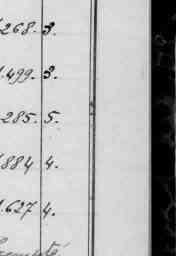 268. 3.
1.499. 3.
285. 5.
884 4.
1.627 4.